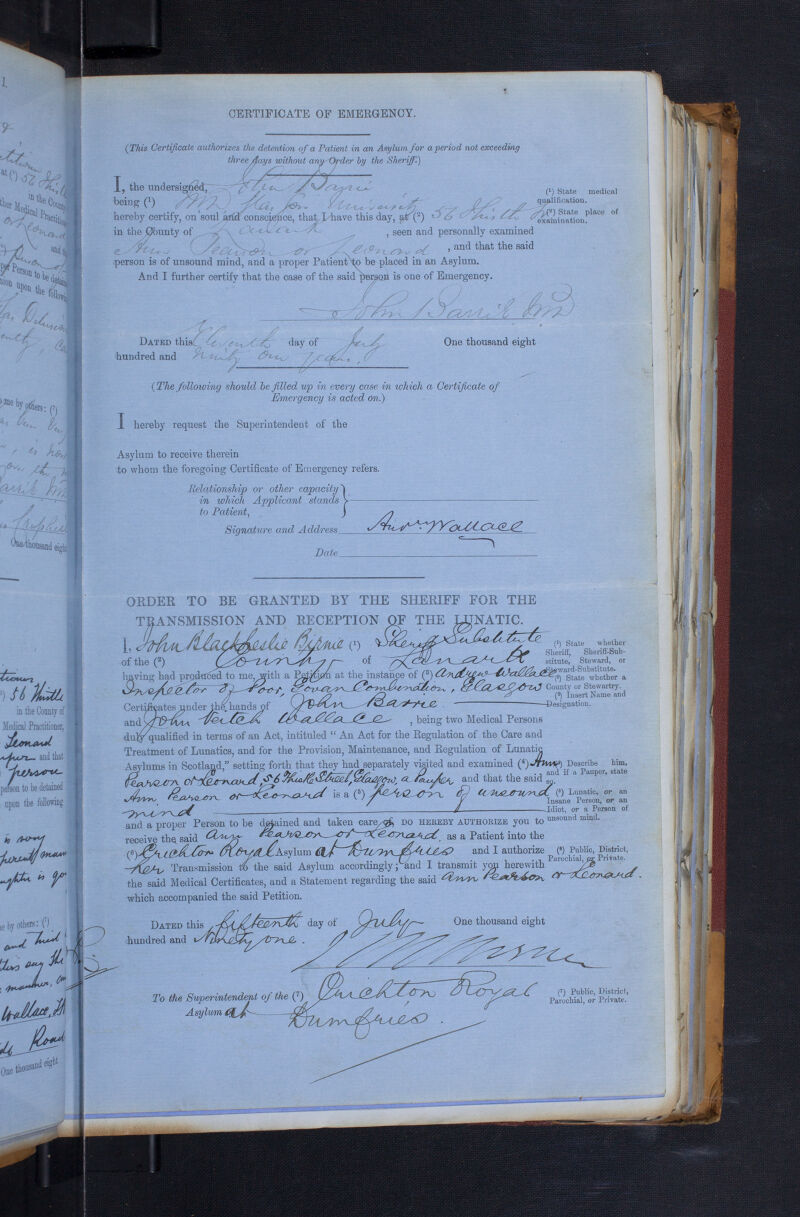 CERTIFICATE OF EMERGENCY.
(This Certificate authorizes the detention of a Patient in an Asylum for a period not exceeding
three days without any Order by the Sheriff.)
I, the undersigned, John Barrie
being (¹) MB Glasgow University
hereby certify, on soul and conscience, that I have this day, at (²) 56 Thistle
in the County of Lanark , seen and personally examined
Ann Pearson or Leonard , and that the said
person is of unsound mind, and a proper Patient to be placed in an Asylum.
And I further certify that the case of the said person is one of Emergency.
(¹) State medical
qualification.
(²) State place of
examination.
John Barrie
DATED this Eleventh day of July One thousand eight
hundred and ninety one years.
(The following should be filled up in every case in which a Certificate of
Emergency is acted on.)
I hereby request the Superintendent of the
Asylum to receive therein
to whom the foregoing Certificate of Emergency refers.
Relationship or other capacity
in which Applicant stands
to Patient,
Signature and Address Andw Wallace
Date
ORDER TO BE GRANTED BY THE SHERIFF FOR THE
TRANSMISSION AND RECEPTION OF THE LUNATIC.
I, John Black Leslie Birnie (¹) Sheriff Substitute
of the (²) County of Lanark
having had produced to me, with a Petition at the instance of (³) Andrew Wallace
Inspector of Poor, Govan Combination, Glasgow
Certificates under the hands of John Barrie
and John Veitch Wallace , being two Medical Persons
duly qualified in terms of an Act, intituled "An Act for the Regulation of the Care and
Treatment of Lunatics, and for the Provision, Maintenance, and Regulation of Lunatic
Asylums in Scotland," setting forth that they had separately visited and examined (⁴) Ann
Pearson or Leonard, 56 Thistle Street, Glasgow, a Pauper and that the said
Ann Pearson or Leonard is a (⁵) person of unsound
mind
and a proper Person to be detained and taken care of, DO HEREBY AUTHORIZE you to
receive the said Ann Pearson or Leonard, as a Patient into the
(⁶) Crichton Royal Asylum at Dumfries and I authorize
her Transmission to the said Asylum accordingly; and I transmit you herewith
the said Medical Certificates, and a Statement regarding the said Ann Pearson or Leonard.
which accompanied the said Petition.
(¹) State whether
Sheriff, Sheriff-Sub-
stitute, Steward, or
Steward-Substitute.
(²) State whether a
County or Stewartry.
(³) Insert Name and
Designation.
(⁴) Describe him,
and if a Pauper, state
so.
(⁵) Lunatic, or an
Insane Person, or an
Idiot, or a Person of
unsound mind.
(⁶) Public, District,
Parochial, or Private.
DATED this fifteenth day of July One thousand eight
hundred and Ninety one.
To the Superintendent of the (⁷) Crichton Royal
Asylum at Dumfries.
(⁷) Public, District,
Parochial, or Private.